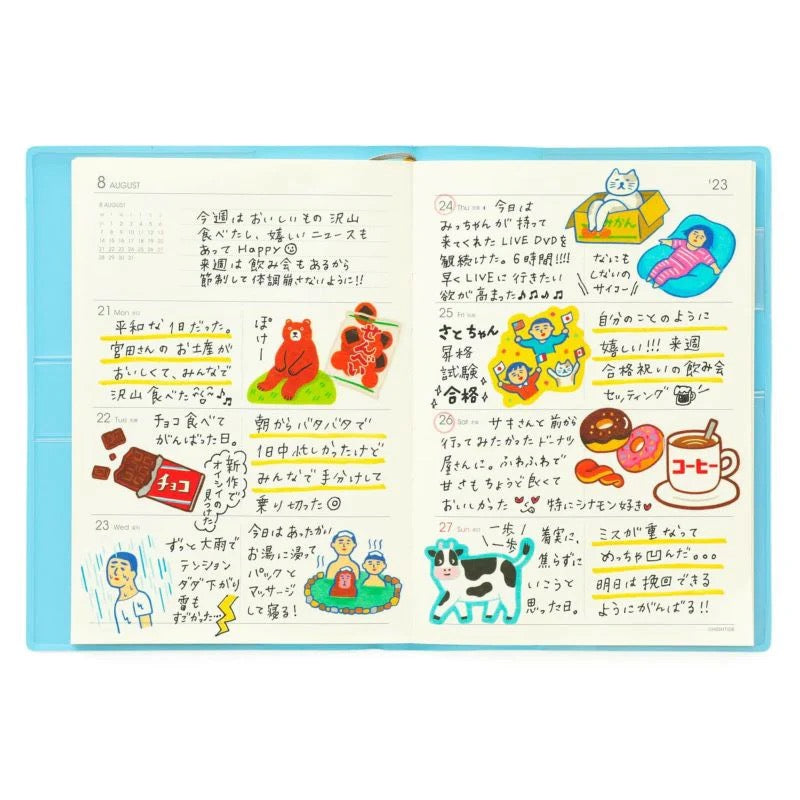 8 AUGUST
8 AUGUST
今週は おいしいもの 沢山
食べたし、嬉しいニュースも
あって Happy
来週は 飲み会もあるから
節制して体調崩さないように!!
21 Mon
平和な1日だった。
宮田さんの お土産が
おいしくて、みんなで
沢山 食べた
ぽけー
22 Tue
チョコ食べて
がんばった日。
新作で
オイシイの
見つけた
チョコ
朝から バタバタで
1日中 忙しかったけど
みんなで 手分けして
乗り切った
23 Wed
ずっと 大雨で
テンション
ダダ下がり
雷も
すごかった…
今日は あったかい
お湯に浸って
パックと
マッサージ
して寝る!
'23
24 Thu
今日は
みっちゃんが 持って
来てくれた LIVE DVDを
観続けた。6時間!!!!
早く LIVEに 行きたい
欲が 高まった♪♪♪♪
みかん
なにも
しないの
サイコー
25 Fri
さとちゃん
昇格
試験
合格
自分のことのように
嬉しい!!! 来週
合格祝いの飲み会
セッティング
26 Sat
サキさんと 前から
行ってみたかった ドーナツ
屋さんに。ふわふわで
甘さも ちょうど良くて
おいしかった 特にシナモン好き
コーヒー
27 Sun
一歩
一歩
着実に、
焦らずに
いこうと
思った日。
ミスが 重なって
めっちゃ 凹んだ。。。
明日は 挽回できる
ようにがんばる!!
©HIGHTIDE